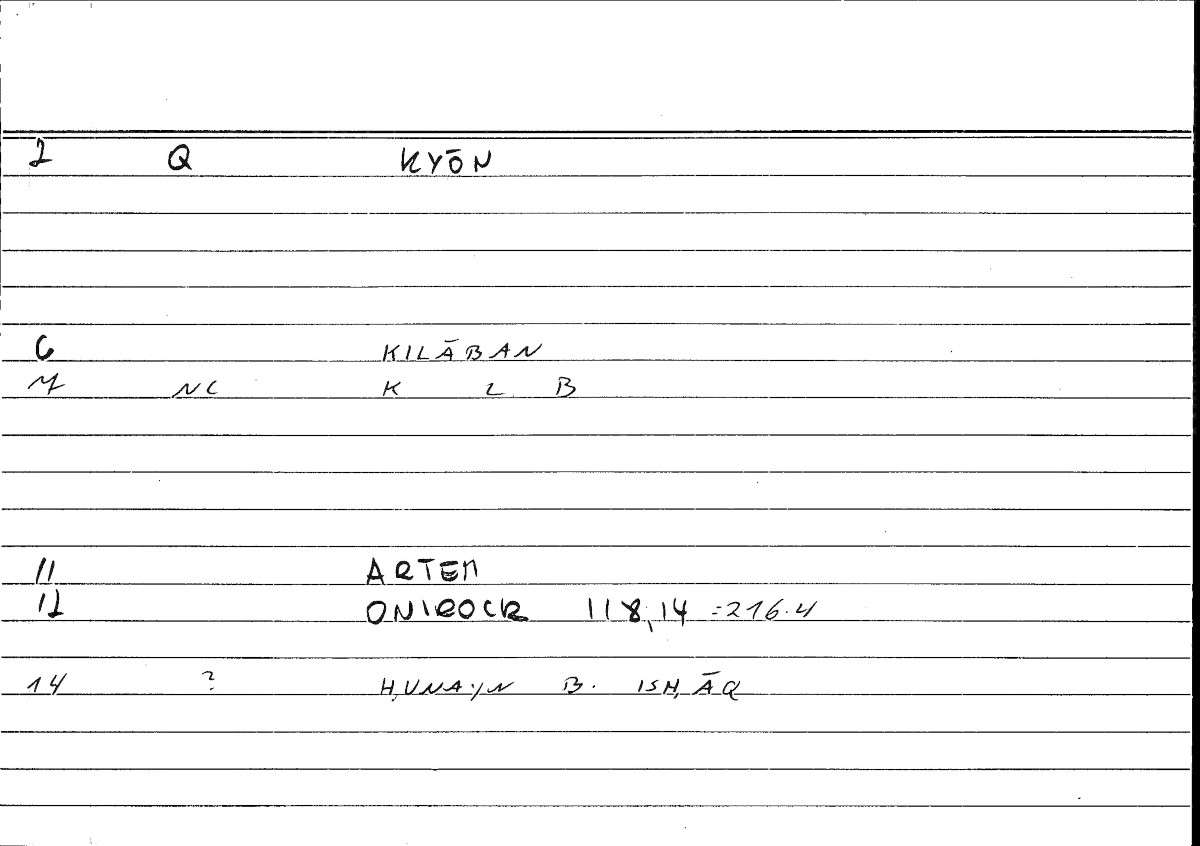 2 Q KYŌN
6 KILĀBAN
7 NC K L B
11 ARTEM
12 ONIROCR 118,14 =216.4
14 ? ḤUNAYN B. ISḤĀQ